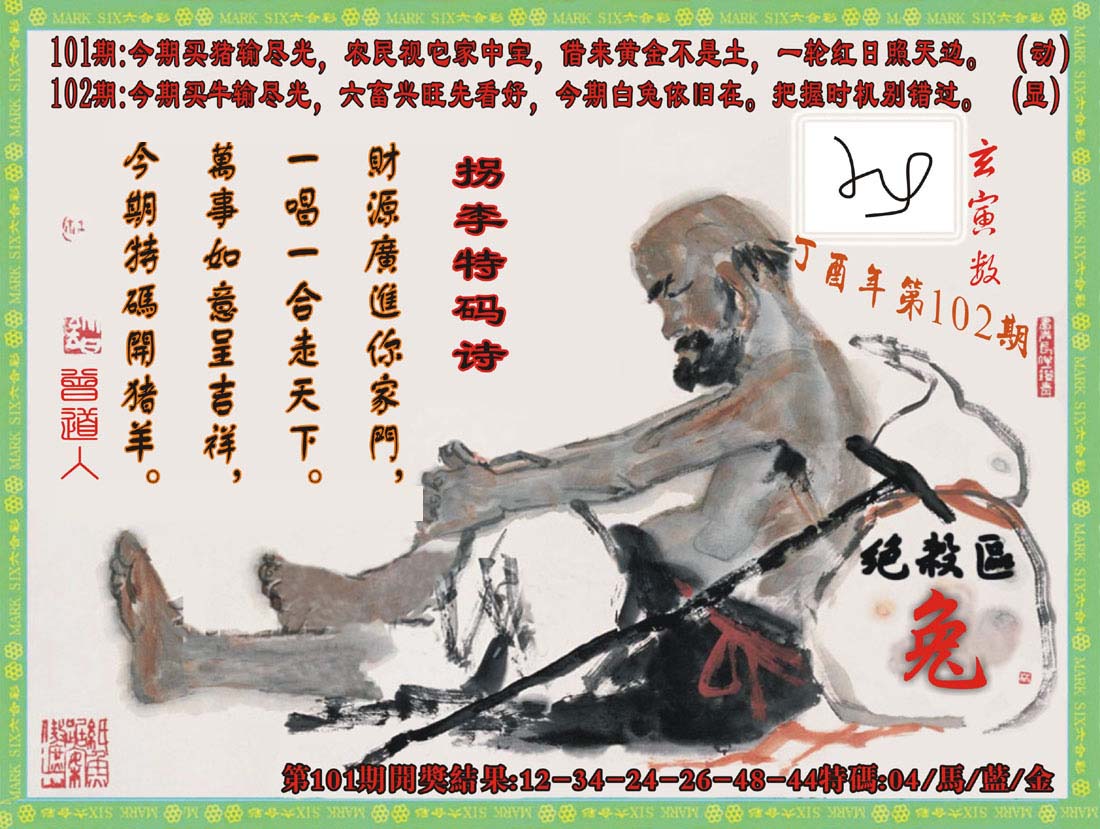 MARK SIX六合彩
101期:今期买猪输尽光，农民视它家中宝，借来黄金不是土，一轮红日照天边。 (动)
102期:今期买牛输尽光，六畜兴旺先看好，今期白兔依旧在。把握时机别错过。 (显)
拐李特码诗
財源廣進你家門，
一唱一合走天下。
萬事如意呈吉祥，
今期特碼開豬羊。
曾道人
玄寅数
丁酉年第102期
绝殺區
兔
第101期開獎結果:12-34-24-26-48-44特碼:04/馬/藍/金